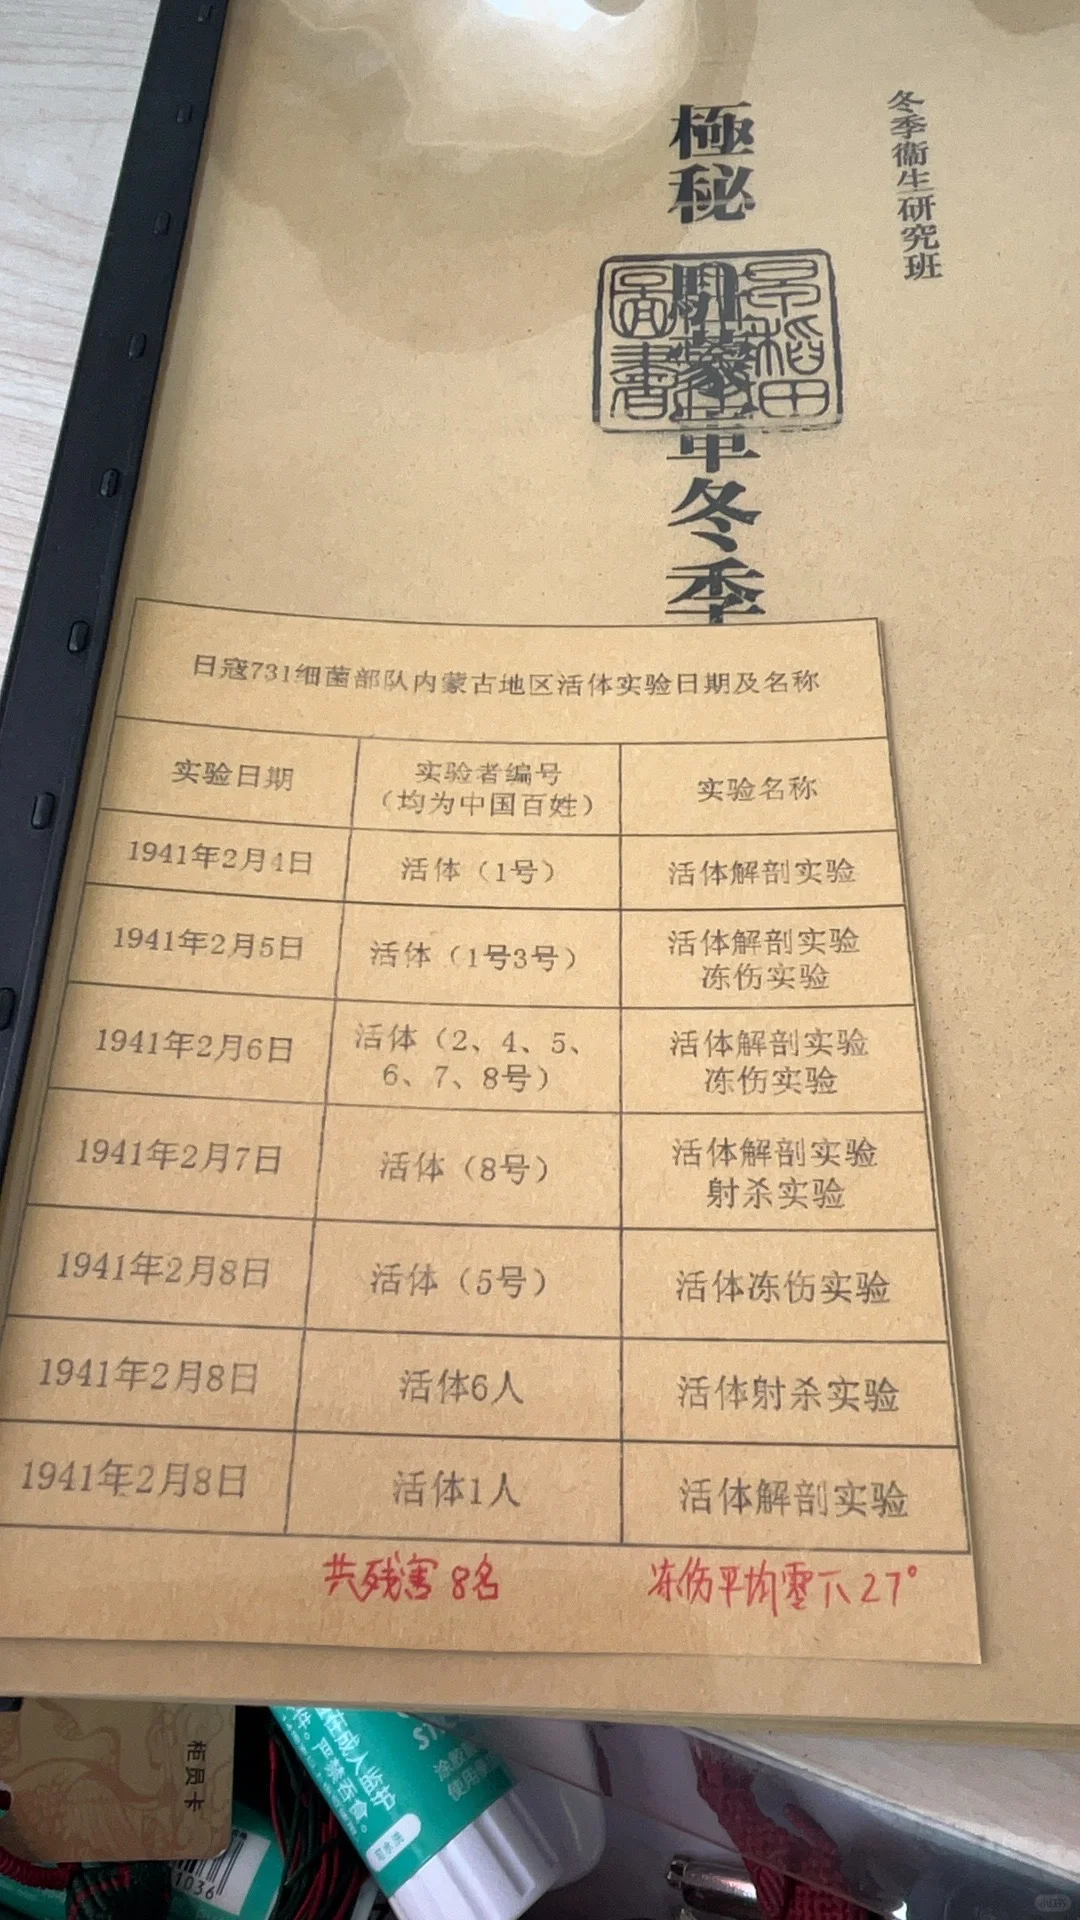 冬季衞生研究班
極秘 駐蒙軍冬季
日寇731细菌部队内蒙古地区活体实验日期及名称
实验日期
实验者编号
（均为中国百姓）
实验名称
1941年2月4日
活体（1号）
活体解剖实验
1941年2月5日
活体（1号3号）
活体解剖实验
冻伤实验
1941年2月6日
活体（2、4、5、
6、7、8号）
活体解剖实验
冻伤实验
1941年2月7日
活体（8号）
活体解剖实验
射杀实验
1941年2月8日
活体（5号）
活体冻伤实验
1941年2月8日
活体6人
活体射杀实验
1941年2月8日
活体1人
活体解剖实验
共残害8名
冻伤平均零下27°
柜员卡
1036
在成人监护
严禁吞食。
涂胶
使用